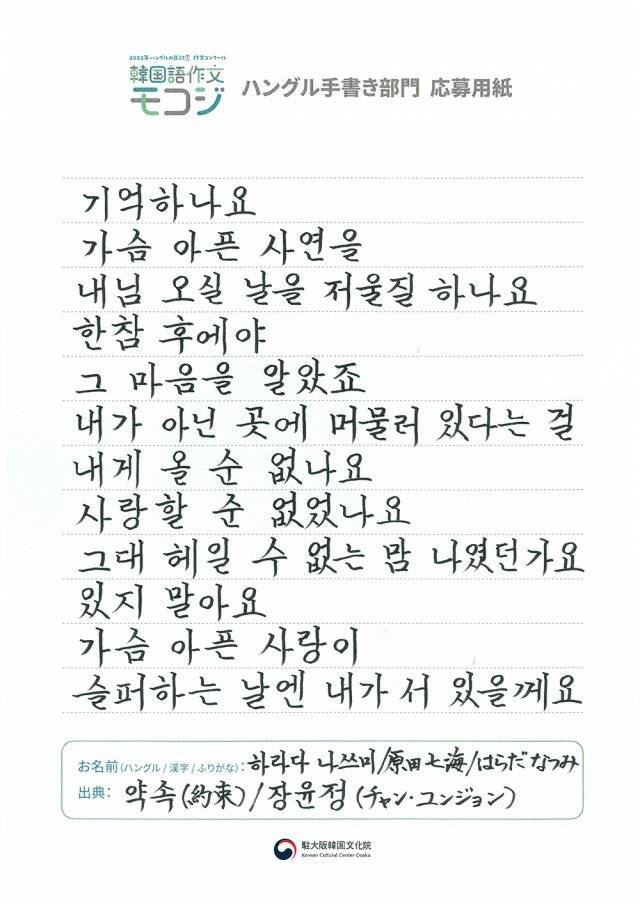 2022年ハングルの日記念 作文コンクール
韓国語作文
モコジ
ハングル手書き部門 応募用紙
기억하나요
가슴 아픈 사연을
내님 오실 날을 저울질 하나요
한참 후에야
그 마음을 알았죠
내가 아닌 곳에 머물러 있다는 걸
내게 올 순 없나요
사랑할 순 없었나요
그대 헤일 수 없는 맘 나였던가요
있지 말아요
가슴 아픈 사랑이
슬퍼하는 날엔 내가 서 있을께요
お名前(ハングル / 漢字 / ふりがな): 하라다 나쓰미/原田七海/はらだ なつみ
出典: 약속(約束)/장윤정(チャン・ユンジョン)
駐大阪韓国文化院
Korean Cultural Center Osaka